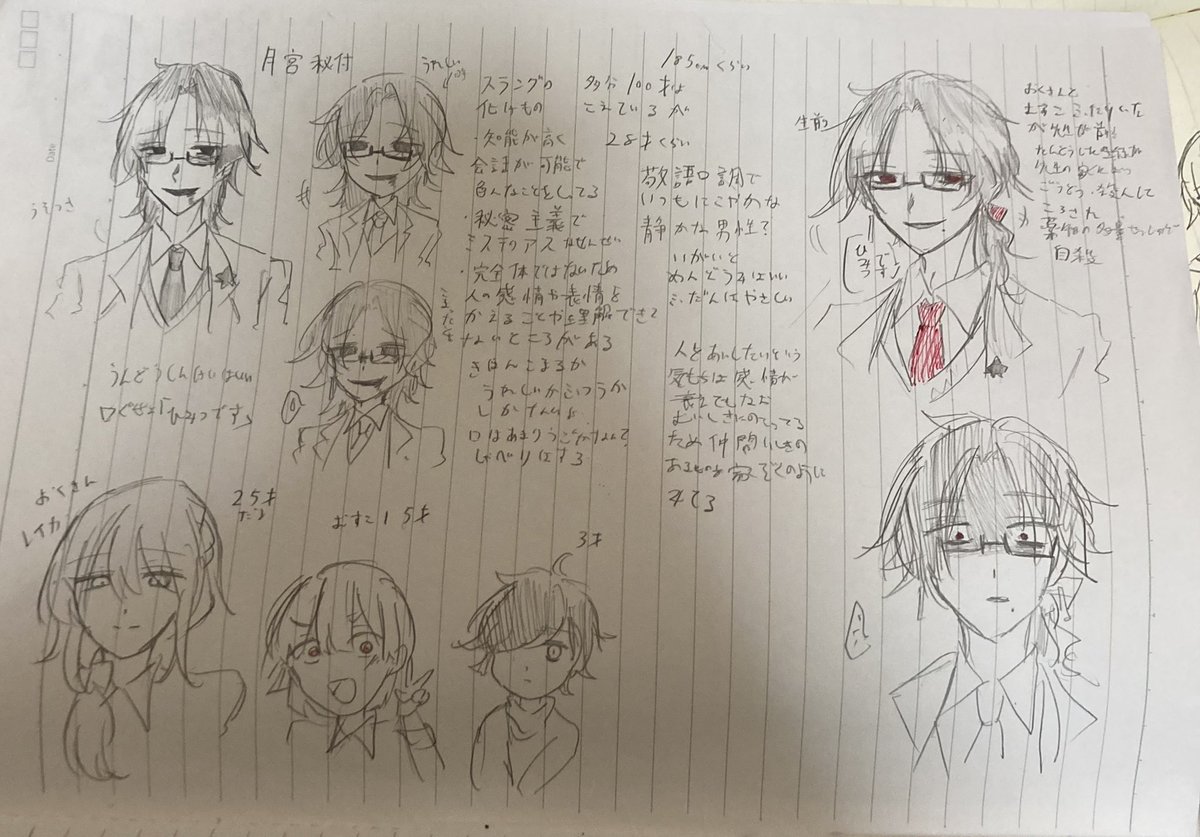 月宮秘付
うれしい
とき
うそっさ
スラングの
化けもの
・知能が高く
会話が可能で
色んなことをしってる
・秘密主義で
ミステリアスなせんせい
・完全体ではないため
人の感情や表情を
かえることや理解できて
ないところがある
きほんこまるか
うれしいかふつうか
しかないよ
口はあまりうごかなくて
しゃべりはする
185cmくらい
多分100才は
こえているが
28才くらい
敬語口調で
いつもにこやかな
静かな男性?
いがいと
めんどうみはいい
ふだんはやさしい
人をあいしたいという
気もちは感情が
きえてもただ
むいしきにのこってる
ため仲間いしきの
あるものを家ぞくのように
みてる
生前
おくさんと
むすこふたりいた
が先生が前に
たんとうした生徒が
先生の家にはいって
ごうとう殺人して
ころされ
自殺
ひみつ
です
うんどうしんけいはいい
口ぐせ:「ひみつです」
おくさん
レイカ
25才
むすこ15才
3才
Date